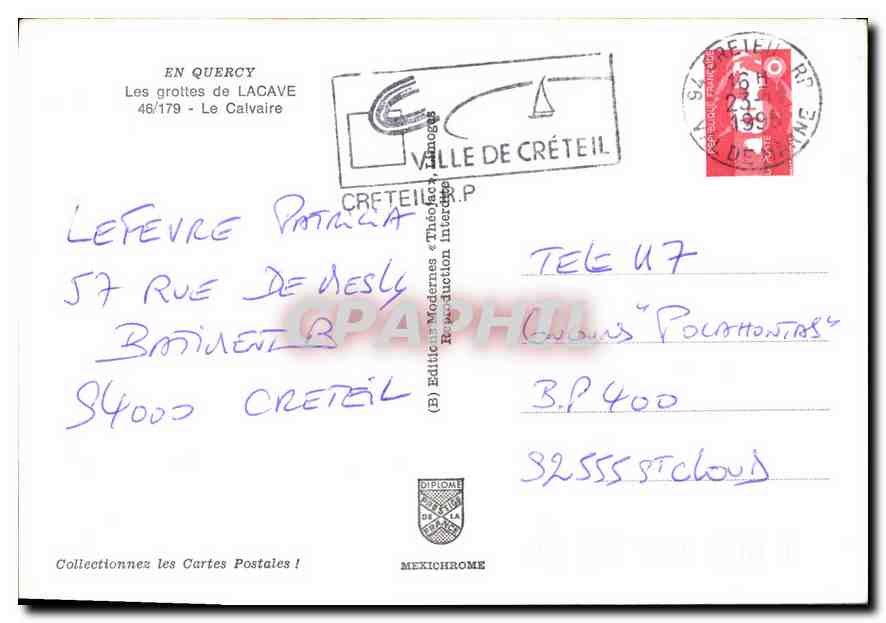 EN QUERCY
Les grottes de LACAVE
46/179 - Le Calvaire
VILLE DE CRÉTEIL
CRETEIL R.P
94 CRETEIL RP
16 H
23-
199
DE MARNE
REPUBLIQUE FRANÇAISE
LEFEVRE PATRICIA
57 RUE DE MESLY
BATIMENT B
94000 CRETEIL
(B) Editions Modernes «Théojac», Limoges
Reproduction interdite
TELE K7
CONCOURS "POCAHONTAS"
B.P 400
92555 ST CLOUD
CPAPHIL
DIPLOME
PRESTIGE
DE LA
FRANCE
Collectionnez les Cartes Postales !
MEXICHROME